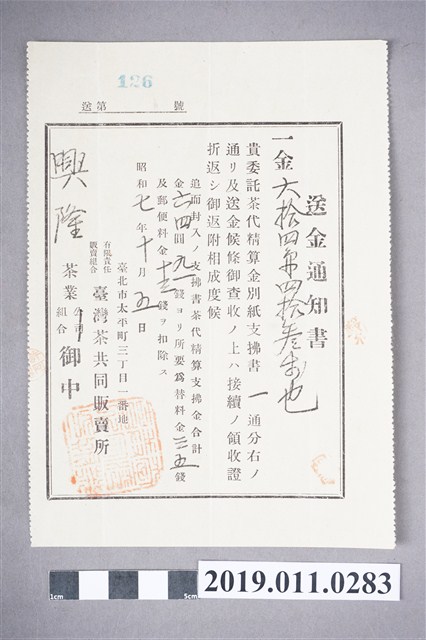 126
送第　　　號
送金通知書
一金六拾四圓四拾叁錢也
貴委託茶代精算金別紙支拂書一通分右ノ
通リ及送金候條御査收ノ上ハ接續ノ領收證
折返シ御返附相成度候
追而封入ノ支拂書茶代精算支拂金合計
金六四圓九一錢ヨリ所要爲替料金三五錢
及郵便料金十三錢ヲ扣除ス
昭和七年十月五日
臺北市太平町三丁目一番地
有限責任
販賣組合
臺灣茶共同販賣所
興隆茶業公司
組合
御中
1cm
5cm
2019.011.0283